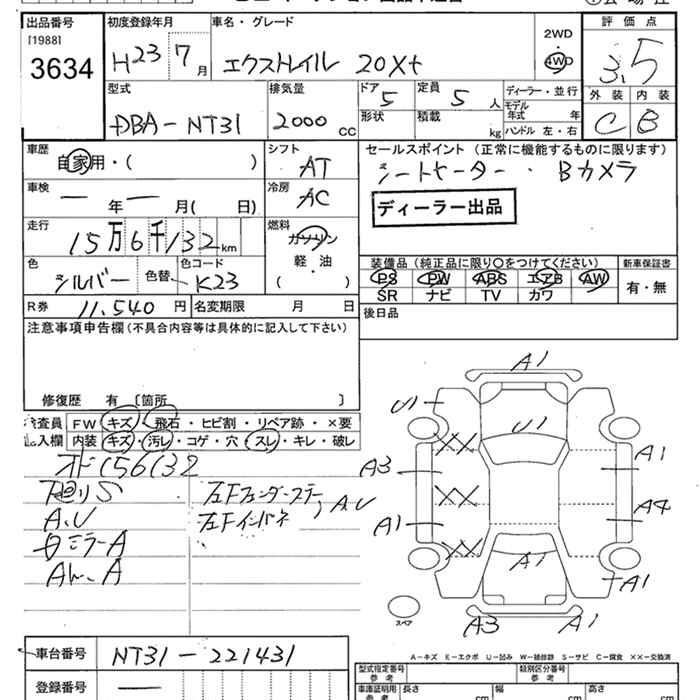 出品番号 初度登録年月 車名・グレード 2WD 評価点
[1988]
3634
H23 7月 エクストレイル 20Xt 4WD 3.5
型式 排気量 ドア 定員 ディーラー・並行 外装 内装
DBA-NT31 2000 CC 5 5 人 モデル年式 年 C B
形状 積載 kg ハンドル 左・右
車歴 シフト セールスポイント(正常に機能するものに限ります)
自家用・( ) AT シートヒーター・Bカメラ
車検 冷房
ー 年 ー 月( 日) AC ディーラー出品
走行 燃料
15万6千132km ガソリン
軽・油
( )
色 色替 色コード 装備品(純正品に限り〇をつけてください) 新車保証書
シルバー K23 PS PW ABS エアB AW 有・無
SR ナビ TV カワ
R券 11,540 円 名変期限 月 日 後日品
注意事項申告欄(不具合内容等は具体的に記入して下さい)
修復歴 有 〔箇所 〕
検査員 FW キズ・飛石・ヒビ割・リペア跡・×要
記入欄 内装 キズ・汚レ・コゲ・穴・スレ・キレ・破レ
156132
下廻りS
A.U
ミラーA
A
左Fフェンダーステー
左Fインパネ
A.U
A1
U1
U1
XX
A1
A3
XX
A4
A1
XX
A1
A1
A3
A1
スペア
A-キズ E-エクボ U-凹み W-補修跡 S-サビ C-腐食 XX-交換済
車台番号 NT31-221431
登録番号 ー
型式指定番号 参考 類別区分番号 参考
車庫証明用 参考 長さ cm 幅 cm 高さ cm